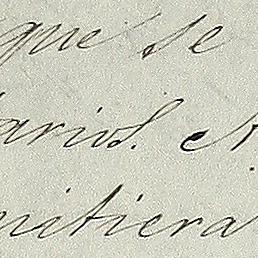 que se
larios. et
mitiera